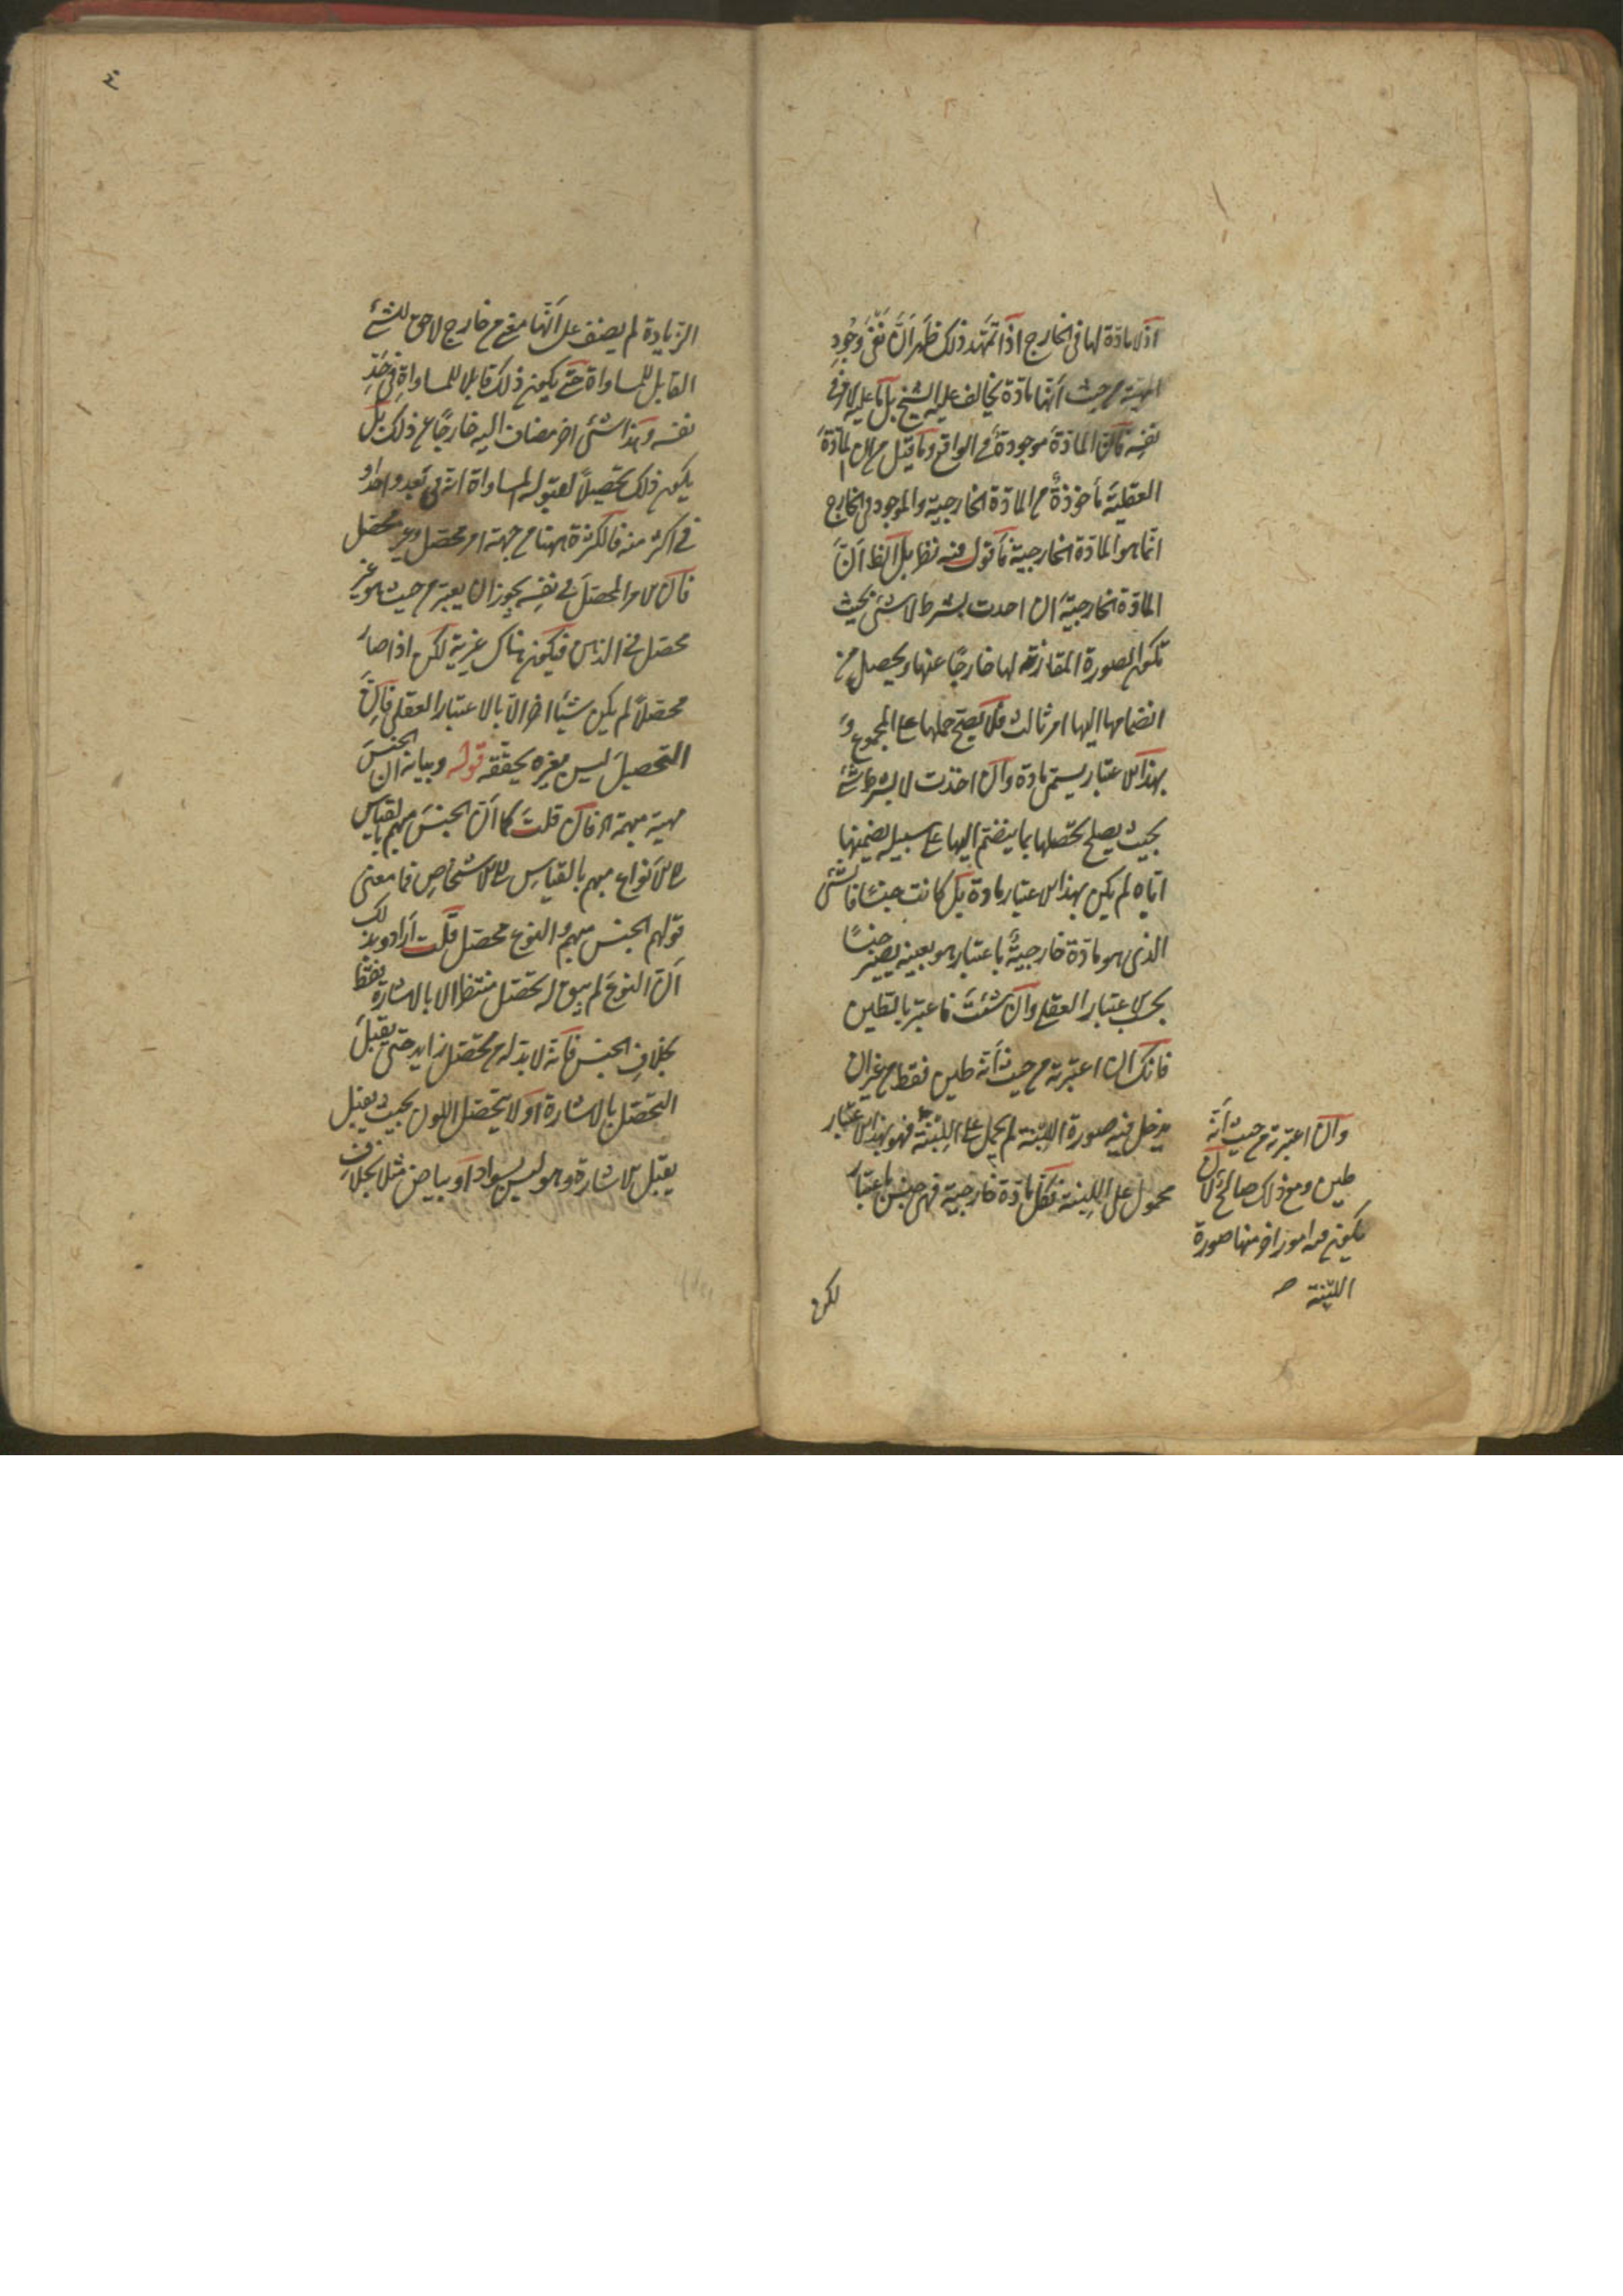 اذ لا مادة لها فى الخارج اذا تمهد ذلك ظهر ان نفى وجود
المهية من حيث انها مادة يخالف عليه الشيخ بل ما عليه الامر فى
نفسه فان المادة موجودة فى الواقع وما قيل من ان المادة
العقلية مأخوذة من المادة الخارجية والموجود فى الخارج
انما هو المادة الخارجية فاقول فيه نظر بل الظ ان
المادة الخارجية ان اخذت بشرط لا شئ بحيث
تكون الصورة المقارنة لها خارجًا عنها ويحصل من
انضمامها اليها امر ثالث فلا يصح حملها على المجموع و
بهذا الاعتبار يسمى مادة وان اخذت لا بشرط شئ
بحيث يصلح تحصلها بما ينضم اليها على سبيل تضمينها
اياه لم يكن بهذا الاعتبار مادة بل كانت جنسًا فالشئ
الذى هو مادة خارجية باعتبار هو بعينه يصير جنسًا
بحسب الاعتبار العقلى وان شئت فاعتبر بالطين
فانك ان اعتبرته من حيث انه طين فقط من غير ان
يدخل فيه صورة اللبنة لم يحمل على اللبنة فهو بهذا الاعتبار
محمول على اللبنة فكل مادة خارجية فهى جنس باعتبار
وان اعتبرته من حيث انه
طين ومع ذلك صالح لان
يكون معه امور اخر منها صورة
اللبنة صح
لكن
٤
الزيادة لم يضف على انها معنى من خارج لاحق للشئ
القابل للمساواة حتى يكون ذلك قابلا للمساواة فى حد
نفسه وهذا شئ اخر مضاف اليه خارجًا عن ذلك بل
يكون ذلك تحصيلًا لقبوله المساواة انه فى بعد واحد او
فى اكثر منه فالكثرة ههنا من جهة امر محصل وغير محصل
فان الامر المحصل فى نفسه يجوز ان يعتبر من حيث هو غير
محصل فى الذهن فيكون هناك غيرية لكن اذا صار
محصلًا لم يكن شيئًا اخر الا بالاعتبار العقلى فان
التحصيل ليس يغيره بل يحققه قوله وبيانه ان الجنس
مهية مبهمة اه فان قلت كما ان الجنس مبهم بالقياس
الى الانواع مبهم بالقياس الى الاشخاص فما معنى
قولهم الجنس مبهم والنوع محصل قلت ارادوا بذلك
ان النوع لم يبق له تحصل منتظر الا بالاشارة فقط
بخلاف الجنس فانه لا بد له من محصل زايد حتى يقبل
التحصل بالاشارة اولا يتحصل اللون بحيث يقبل
يقبل الاشارة وهو ليس بسواد او بياض مثلا بخلاف